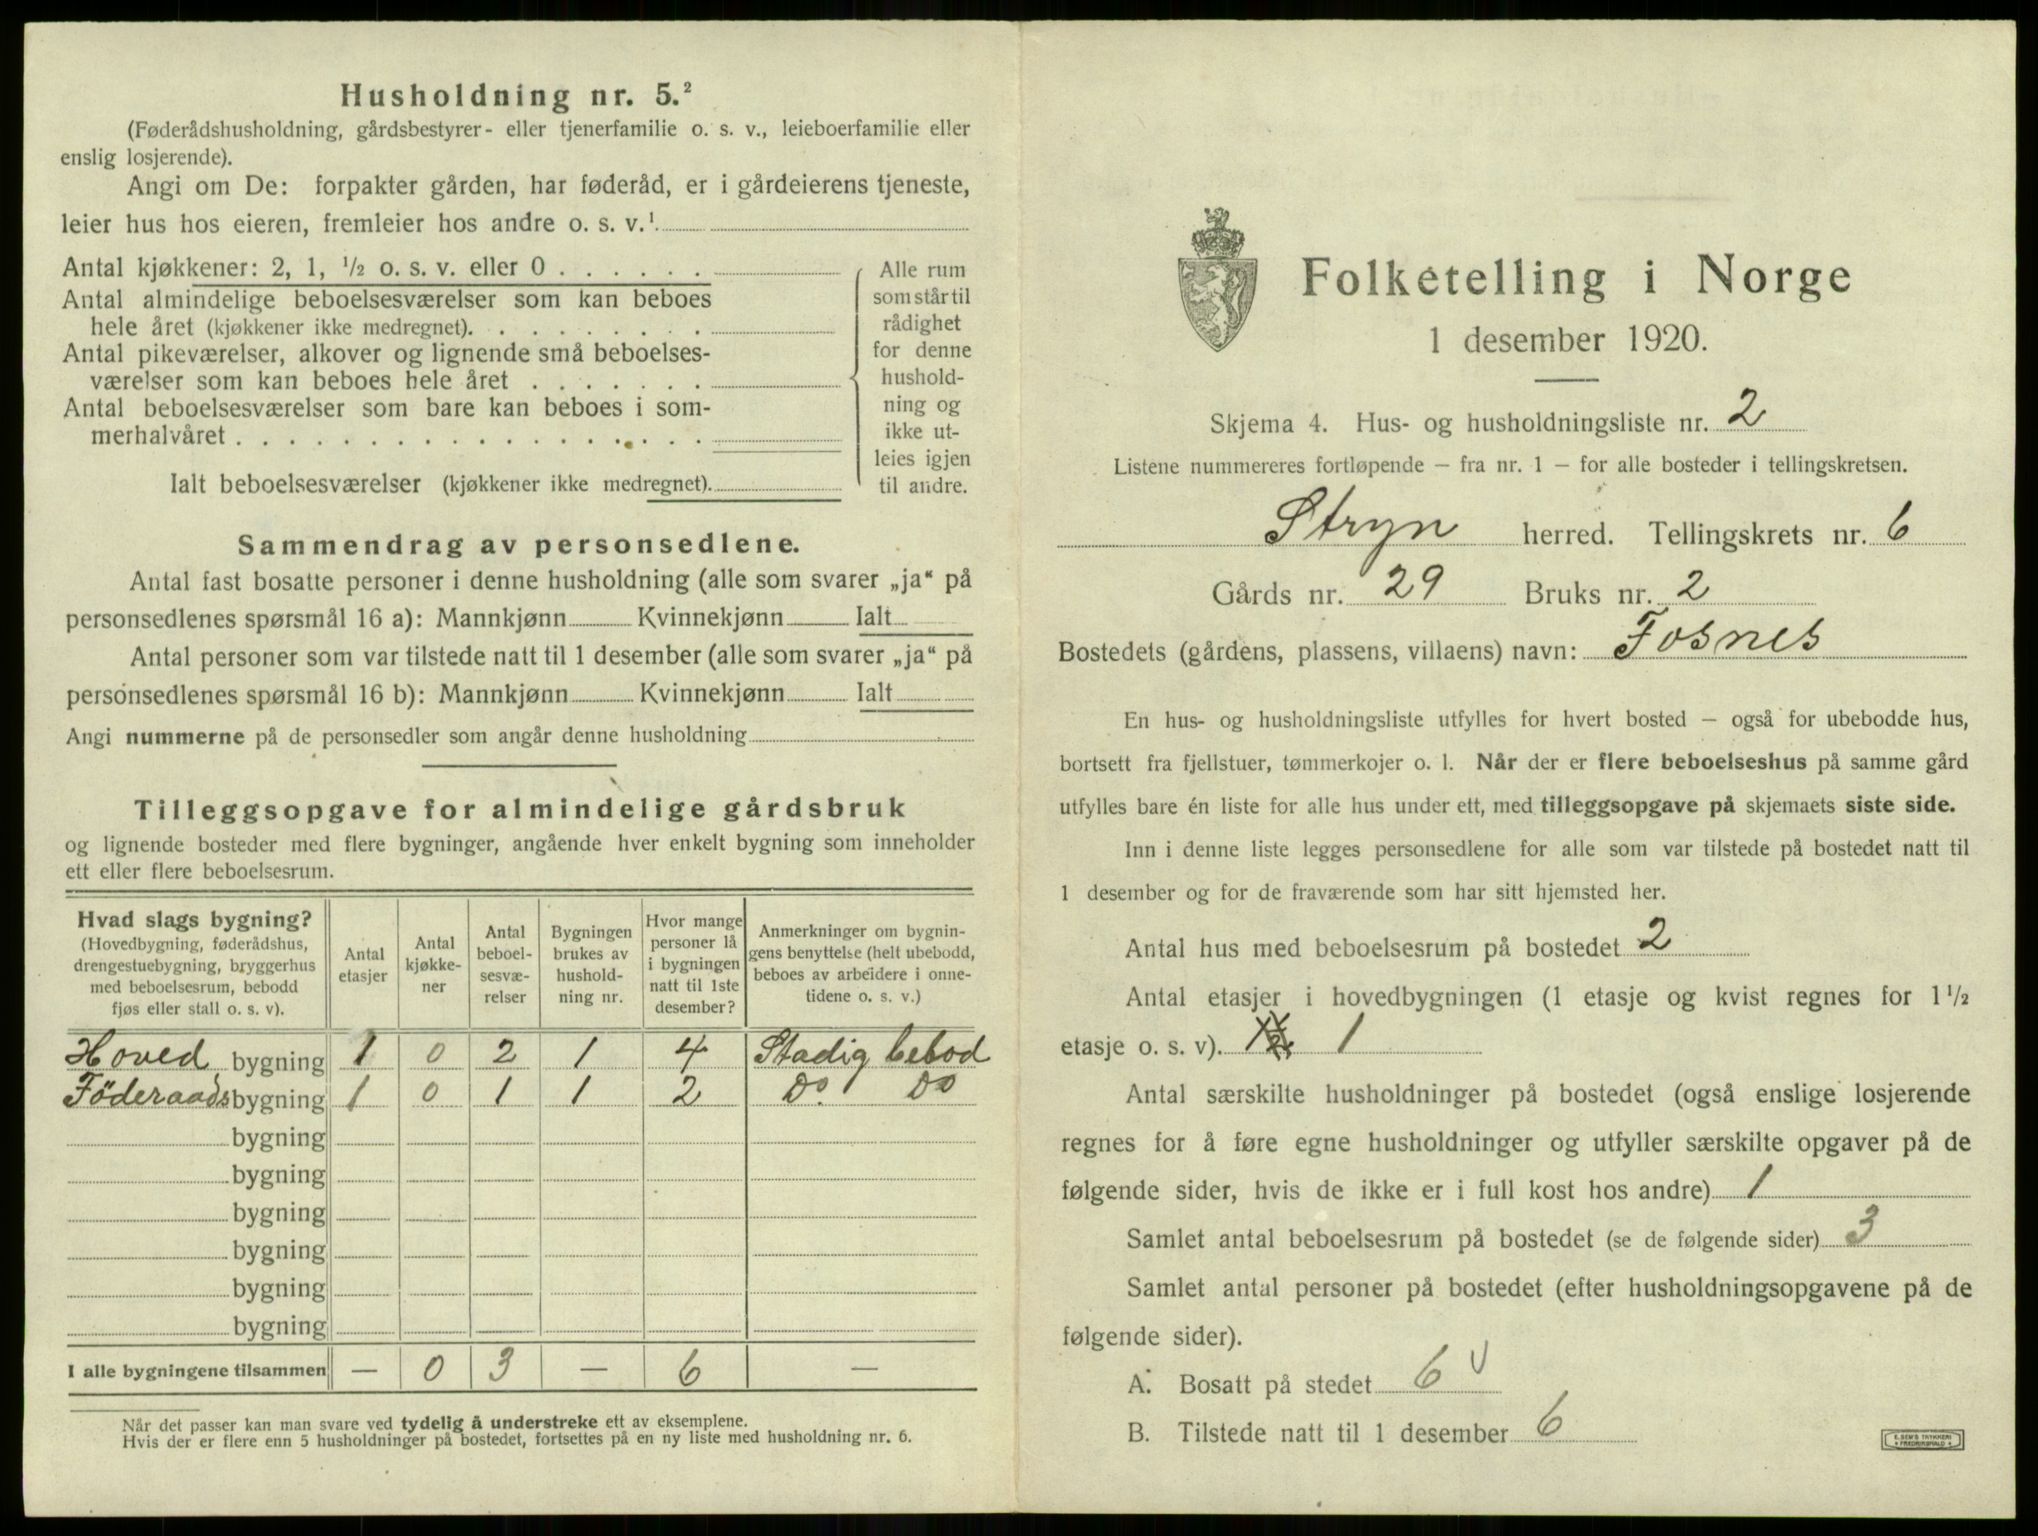 Husholdning nr. 5.²
(Føderådshusholdning, gårdsbestyrer- eller tjenerfamilie o. s. v., leieboerfamilie eller
enslig losjerende).
Angi om De: forpakter gården, har føderåd, er i gårdeierens tjeneste,
leier hus hos eieren, fremleier hos andre o. s. v.¹
Antal kjøkkener: 2, 1, ½ o. s. v. eller 0 . . . . . .
Antal almindelige beboelsesværelser som kan beboes
hele året (kjøkkener ikke medregnet). . . . . . . . .
Antal pikeværelser, alkover og lignende små beboelses-
værelser som kan beboes hele året . . . . . . .
Antal beboelsesværelser som bare kan beboes i som-
merhalvåret . . . . . . . . . . . . . . . . . .
Ialt beboelsesværelser (kjøkkener ikke medregnet).
Alle rum
som står til
rådighet
for denne
hushold-
ning og
ikke ut-
leies igjen
til andre.
Sammendrag av personsedlene.
Antal fast bosatte personer i denne husholdning (alle som svarer „ja“ på
personsedlenes spørsmål 16 a): Mannkjønn Kvinnekjønn Ialt
Antal personer som var tilstede natt til 1 desember (alle som svarer „ja“ på
personsedlenes spørsmål 16 b): Mannkjønn Kvinnekjønn Ialt
Angi nummerne på de personsedler som angår denne husholdning
Tilleggsopgave for almindelige gårdsbruk
og lignende bosteder med flere bygninger, angående hver enkelt bygning som inneholder
ett eller flere beboelsesrum.
Hvad slags bygning?
(Hovedbygning, føderådshus,
drengestuebygning, bryggerhus
med beboelsesrum, bebodd
fjøs eller stall o. s. v).
Antal
etasjer
Antal
kjøkke-
ner
Antal
beboel-
sesvæ-
relser
Bygningen
brukes av
hushold-
ning nr.
Hvor mange
personer lå
i bygningen
natt til 1ste
desember?
Anmerkninger om bygnin-
gens benyttelse (helt ubebodd,
beboes av arbeidere i onne-
tidene o. s. v.)
Hoved bygning 1 0 2 1 4 Stadig bebod
Föderaads bygning 1 0 1 1 2 Do. Do
bygning
bygning
bygning
bygning
bygning
bygning
I alle bygningene tilsammen — 0 3 — 6 —
Når det passer kan man svare ved tydelig å understreke ett av eksemplene.
Hvis der er flere enn 5 husholdninger på bostedet, fortsettes på en ny liste med husholdning nr. 6.
Folketelling i Norge
1 desember 1920.
Skjema 4. Hus- og husholdningsliste nr. 2
Listene nummereres fortløpende – fra nr. 1 – for alle bosteder i tellingskretsen.
Stryn herred. Tellingskrets nr. 6
Gårds nr. 29 Bruks nr. 2
Bostedets (gårdens, plassens, villaens) navn: Fosnes
En hus- og husholdningsliste utfylles for hvert bosted – også for ubebodde hus,
bortsett fra fjellstuer, tømmerkojer o. l. Når der er flere beboelseshus på samme gård
utfylles bare én liste for alle hus under ett, med tilleggsopgave på skjemaets siste side.
Inn i denne liste legges personsedlene for alle som var tilstede på bostedet natt til
1 desember og for de fraværende som har sitt hjemsted her.
Antal hus med beboelsesrum på bostedet 2
Antal etasjer i hovedbygningen (1 etasje og kvist regnes for 1½
etasje o. s. v). 1
Antal særskilte husholdninger på bostedet (også enslige losjerende
regnes for å føre egne husholdninger og utfyller særskilte opgaver på de
følgende sider, hvis de ikke er i full kost hos andre) 1
Samlet antal beboelsesrum på bostedet (se de følgende sider) 3
Samlet antal personer på bostedet (efter husholdningsopgavene på de
følgende sider).
A. Bosatt på stedet 6
B. Tilstede natt til 1 desember 6
E. SEM'S TRYKKERI
• FREDRIKSHALD •